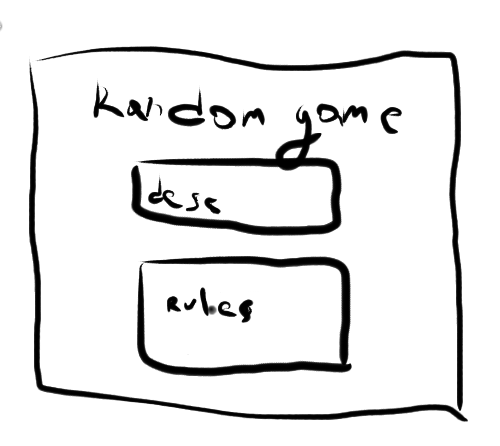 Random game
desc
rules